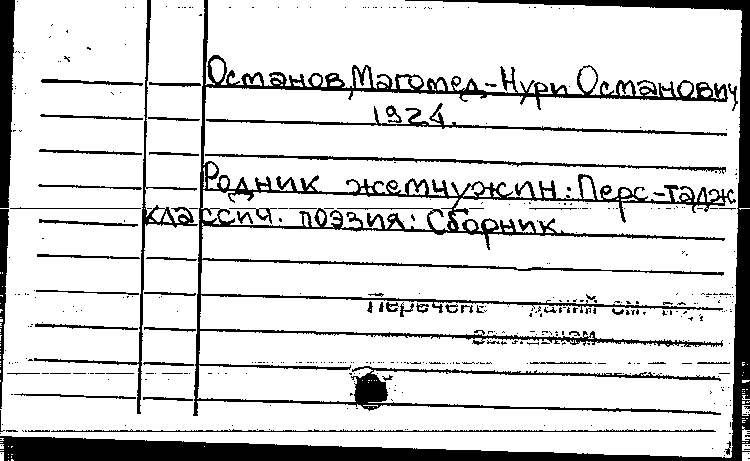 Османов, Магомед-Нури Османович,
1924.
Родник жемчужин: Перс.-тадж.
классич. поэзия: Сборник.
Перечень
см. под